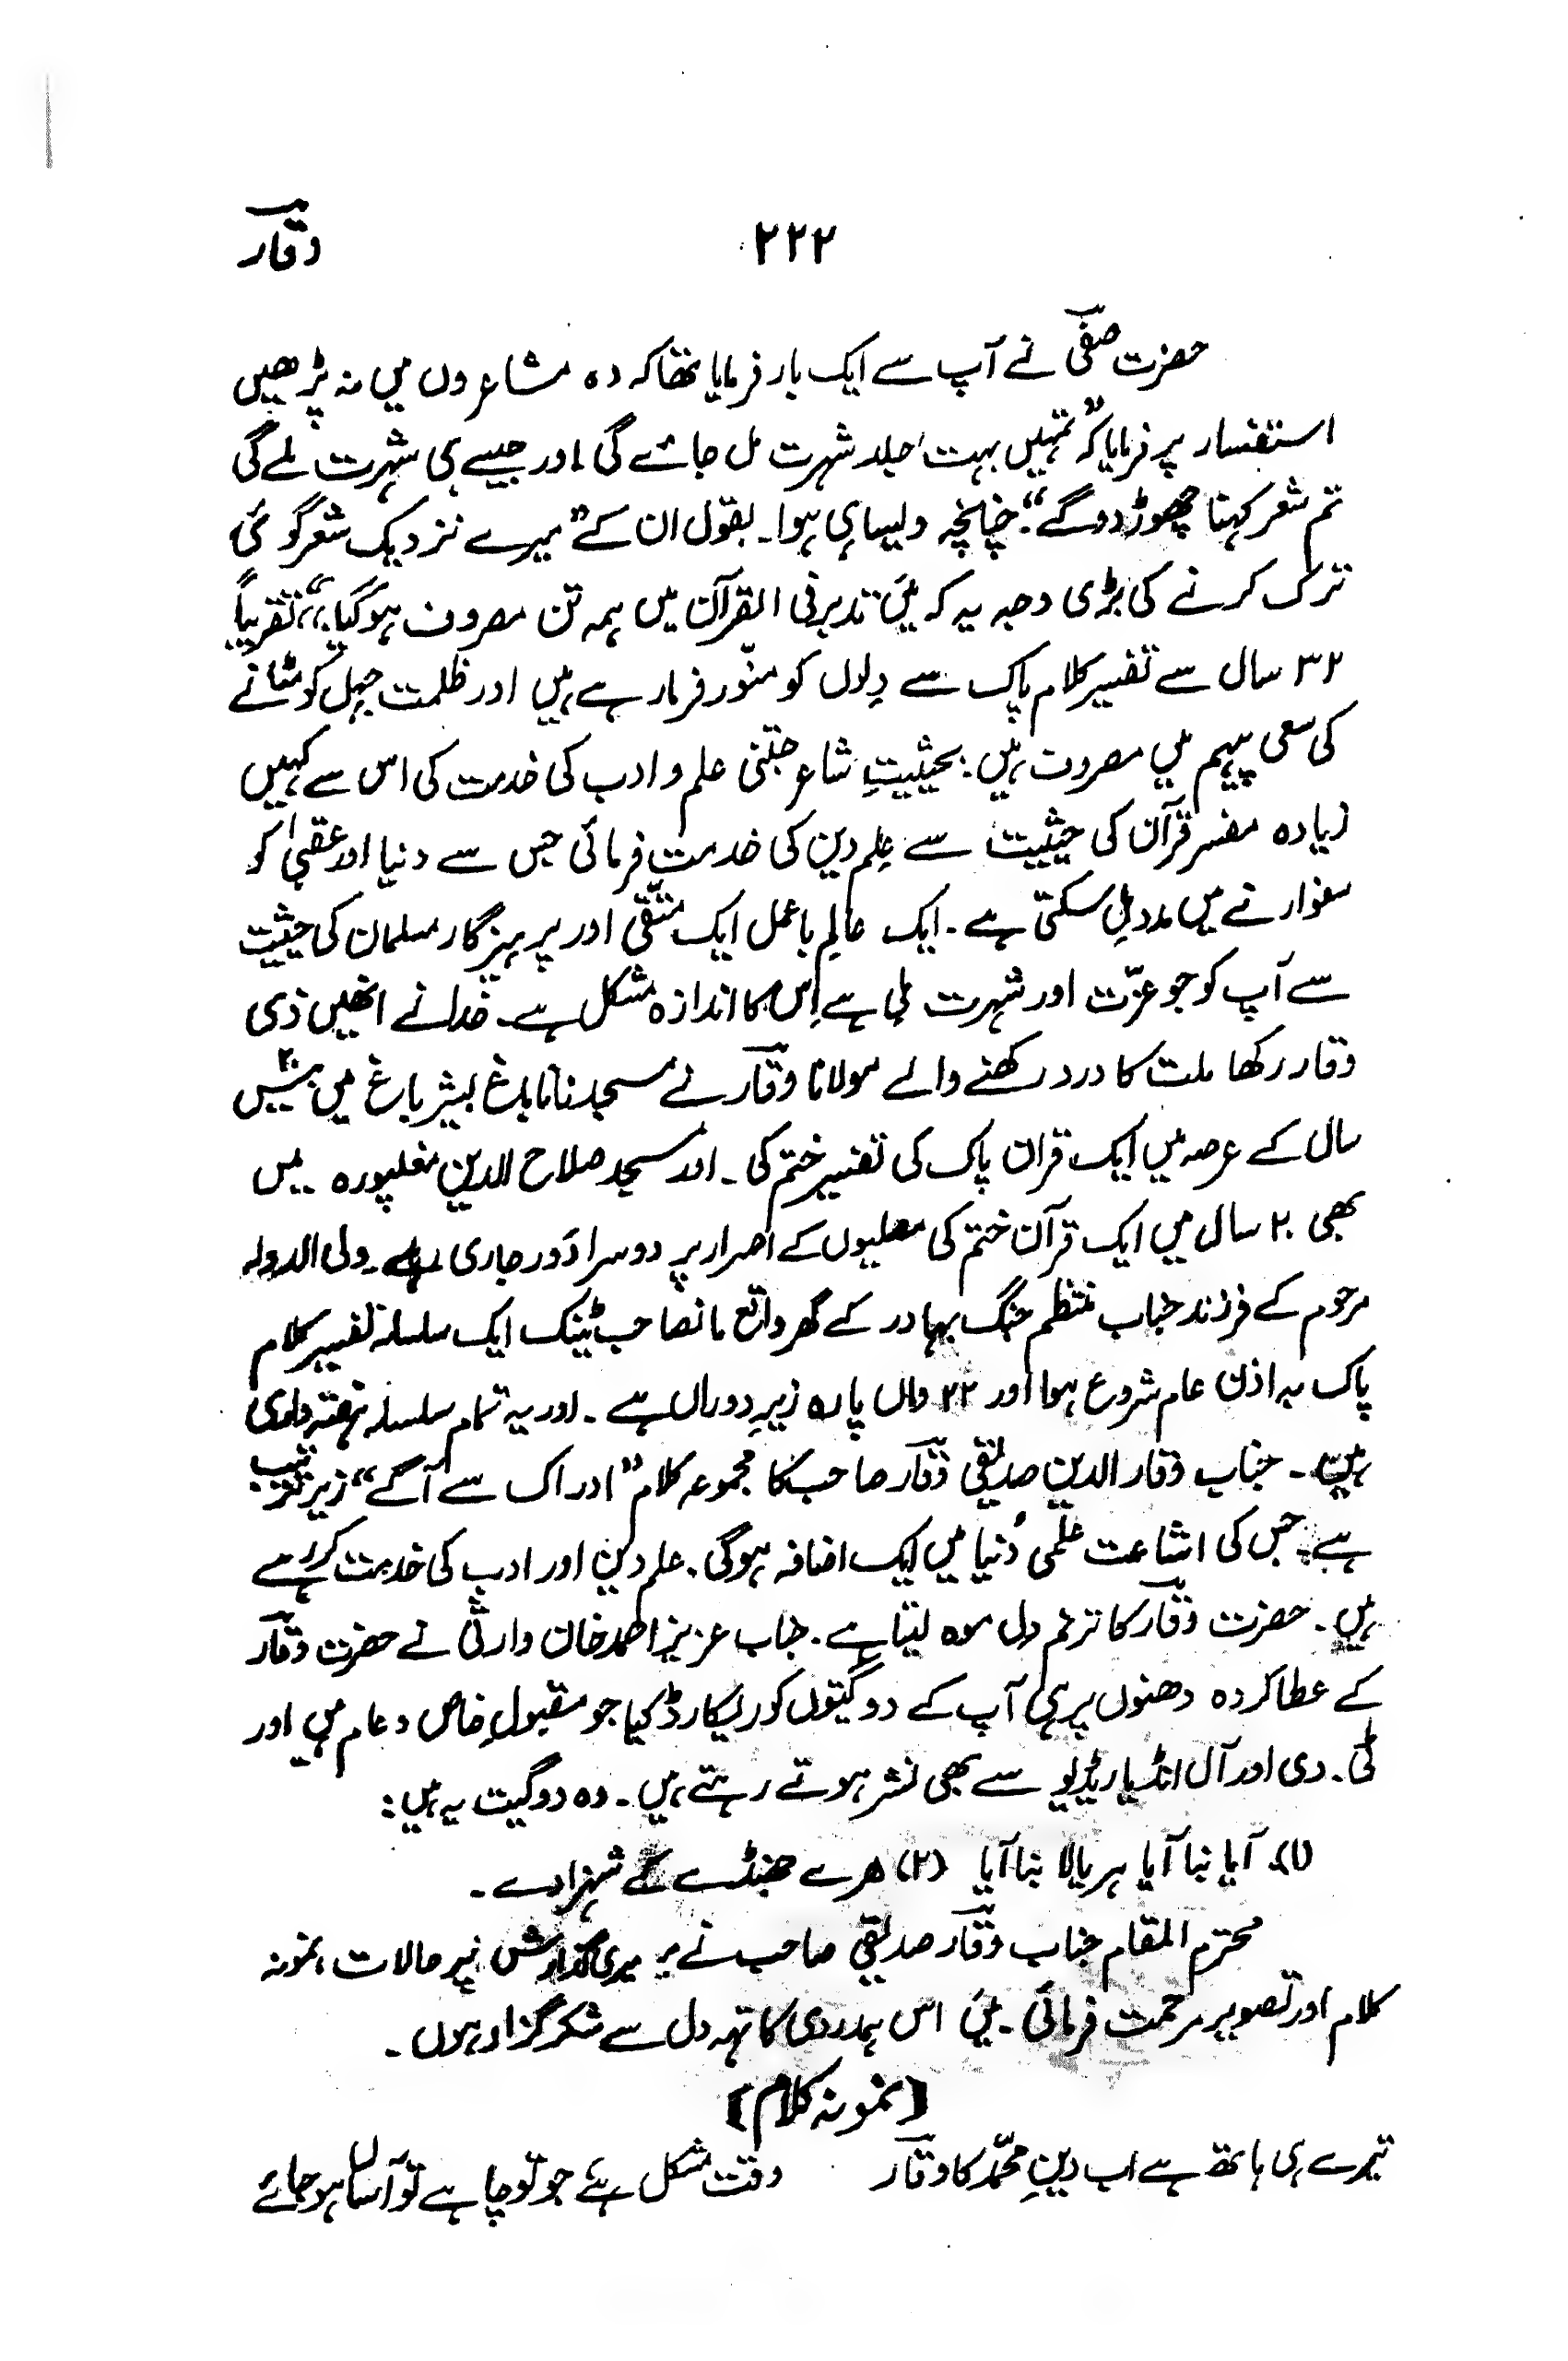 ۲۲۲
وقار
حضرت صفیؔ نے آپ سے ایک بار فرمایا تھا کہ وہ مشاعروں میں نہ پڑھیں
استفسار پر فرمایا کہ "تمہیں بہت جلد شہرت مل جائے گی اور جیسے ہی شہرت ملے گی
تم شعر کہنا چھوڑ دو گے"۔ چنانچہ ویسا ہی ہوا۔ بقول ان کے "میرے نزدیک شعر گوئی
ترک کرنے کی بڑی وجہ یہ کہ میں تدبر فی القرآن میں ہمہ تن مصروف ہوگیا"، تقریباً
۳۲ سال سے تفسیر کلام پاک سے دِلوں کو منوّر فرما رہے ہیں اور ظلمت جہل کو مٹانے
کی سعی پیہم میں مصروف ہیں۔ بحیثیتِ شاعر جتنی علم و ادب کی خدمت کی اس سے کہیں
زیادہ مفسر قرآن کی حیثیت سے علِم دین کی خدمت فرمائی جس سے دنیا اور عقبیٰ کو
سنوارنے میں مدد مِل سکتی ہے۔ ایک عالِم باعمل ایک متّقی اور پرہیزگار مسلمان کی حیثیت
سے آپ کو جو عزّت اور شہرت ملی ہے اِس کا اندازہ مشکل ہے۔ خدا نے انھیں ذی
وقار رکھا ملت کا درد رکھنے والے مولانا وقارؔ نے مسجد نانا باغ بشیر باغ میں ۲۰ بیس
سال کے عرصہ میں ایک قران پاک کی تفسیر ختم کی۔ اور مسجد صلاح الدین مغلپورہ میں
بھی ۲۰ سال میں ایک قرآن ختم کی مصلیوں کے اصرار پر دوسرا دَور جاری ہے۔ ولی الدولہ
مرحوم کے فرزند جناب منتظم جنگ بہادر کے گھر واقع مانصاحب ٹینک ایک سلسلہ تفسیر کلام
پاک بہ اذن عام شروع ہوا اور ۲۲ واں پارہ زیرِ دوراں ہے۔ اور یہ تمام سلسلہ ہفتہ واری
ہیں۔ جناب وقار الدین صدیقی وقارؔ صاحب کا مجموعہ کلام "ادراک سے آگے" زیر ترتیب
ہے۔ جس کی اشاعت علمی دُنیا میں ایک اضافہ ہوگی۔ علم دین اور ادب کی خدمت کر رہے
ہیں۔ حضرت وقارؔ کا ترنم دل موہ لیتا ہے۔ جناب عزیز احمد خان وارثی نے حضرت وقارؔ
کے عطا کردہ دھنوں پر ہی آپ کے دو گیتوں کو ریکارڈ کیا جو مقبولِ خاص و عام ہیں اور
ٹی۔ وی اور آل انڈیا ریڈیو سے بھی نشر ہوتے رہتے ہیں۔ وہ دو گیت یہ ہیں:
(۱) آیا بنا آیا ہریالا بنا آیا (۲) ہرے جھنڈے کے شہزادے۔
محترم المقام جناب وقارؔ صدیقی صاحب نے میری گذارش پر حالات، نمونہ
کلام اور تصویر مرحمت فرمائی۔ میں اس ہمدردی کا تہہ دل سے شکر گزار ہوں۔
[نمونہ کلام]
تیرے ہی ہاتھ ہے اب دینِ محمّد کا وقارؔ وقت مشکل ہے جو تو چاہے تو آساں ہو جائے